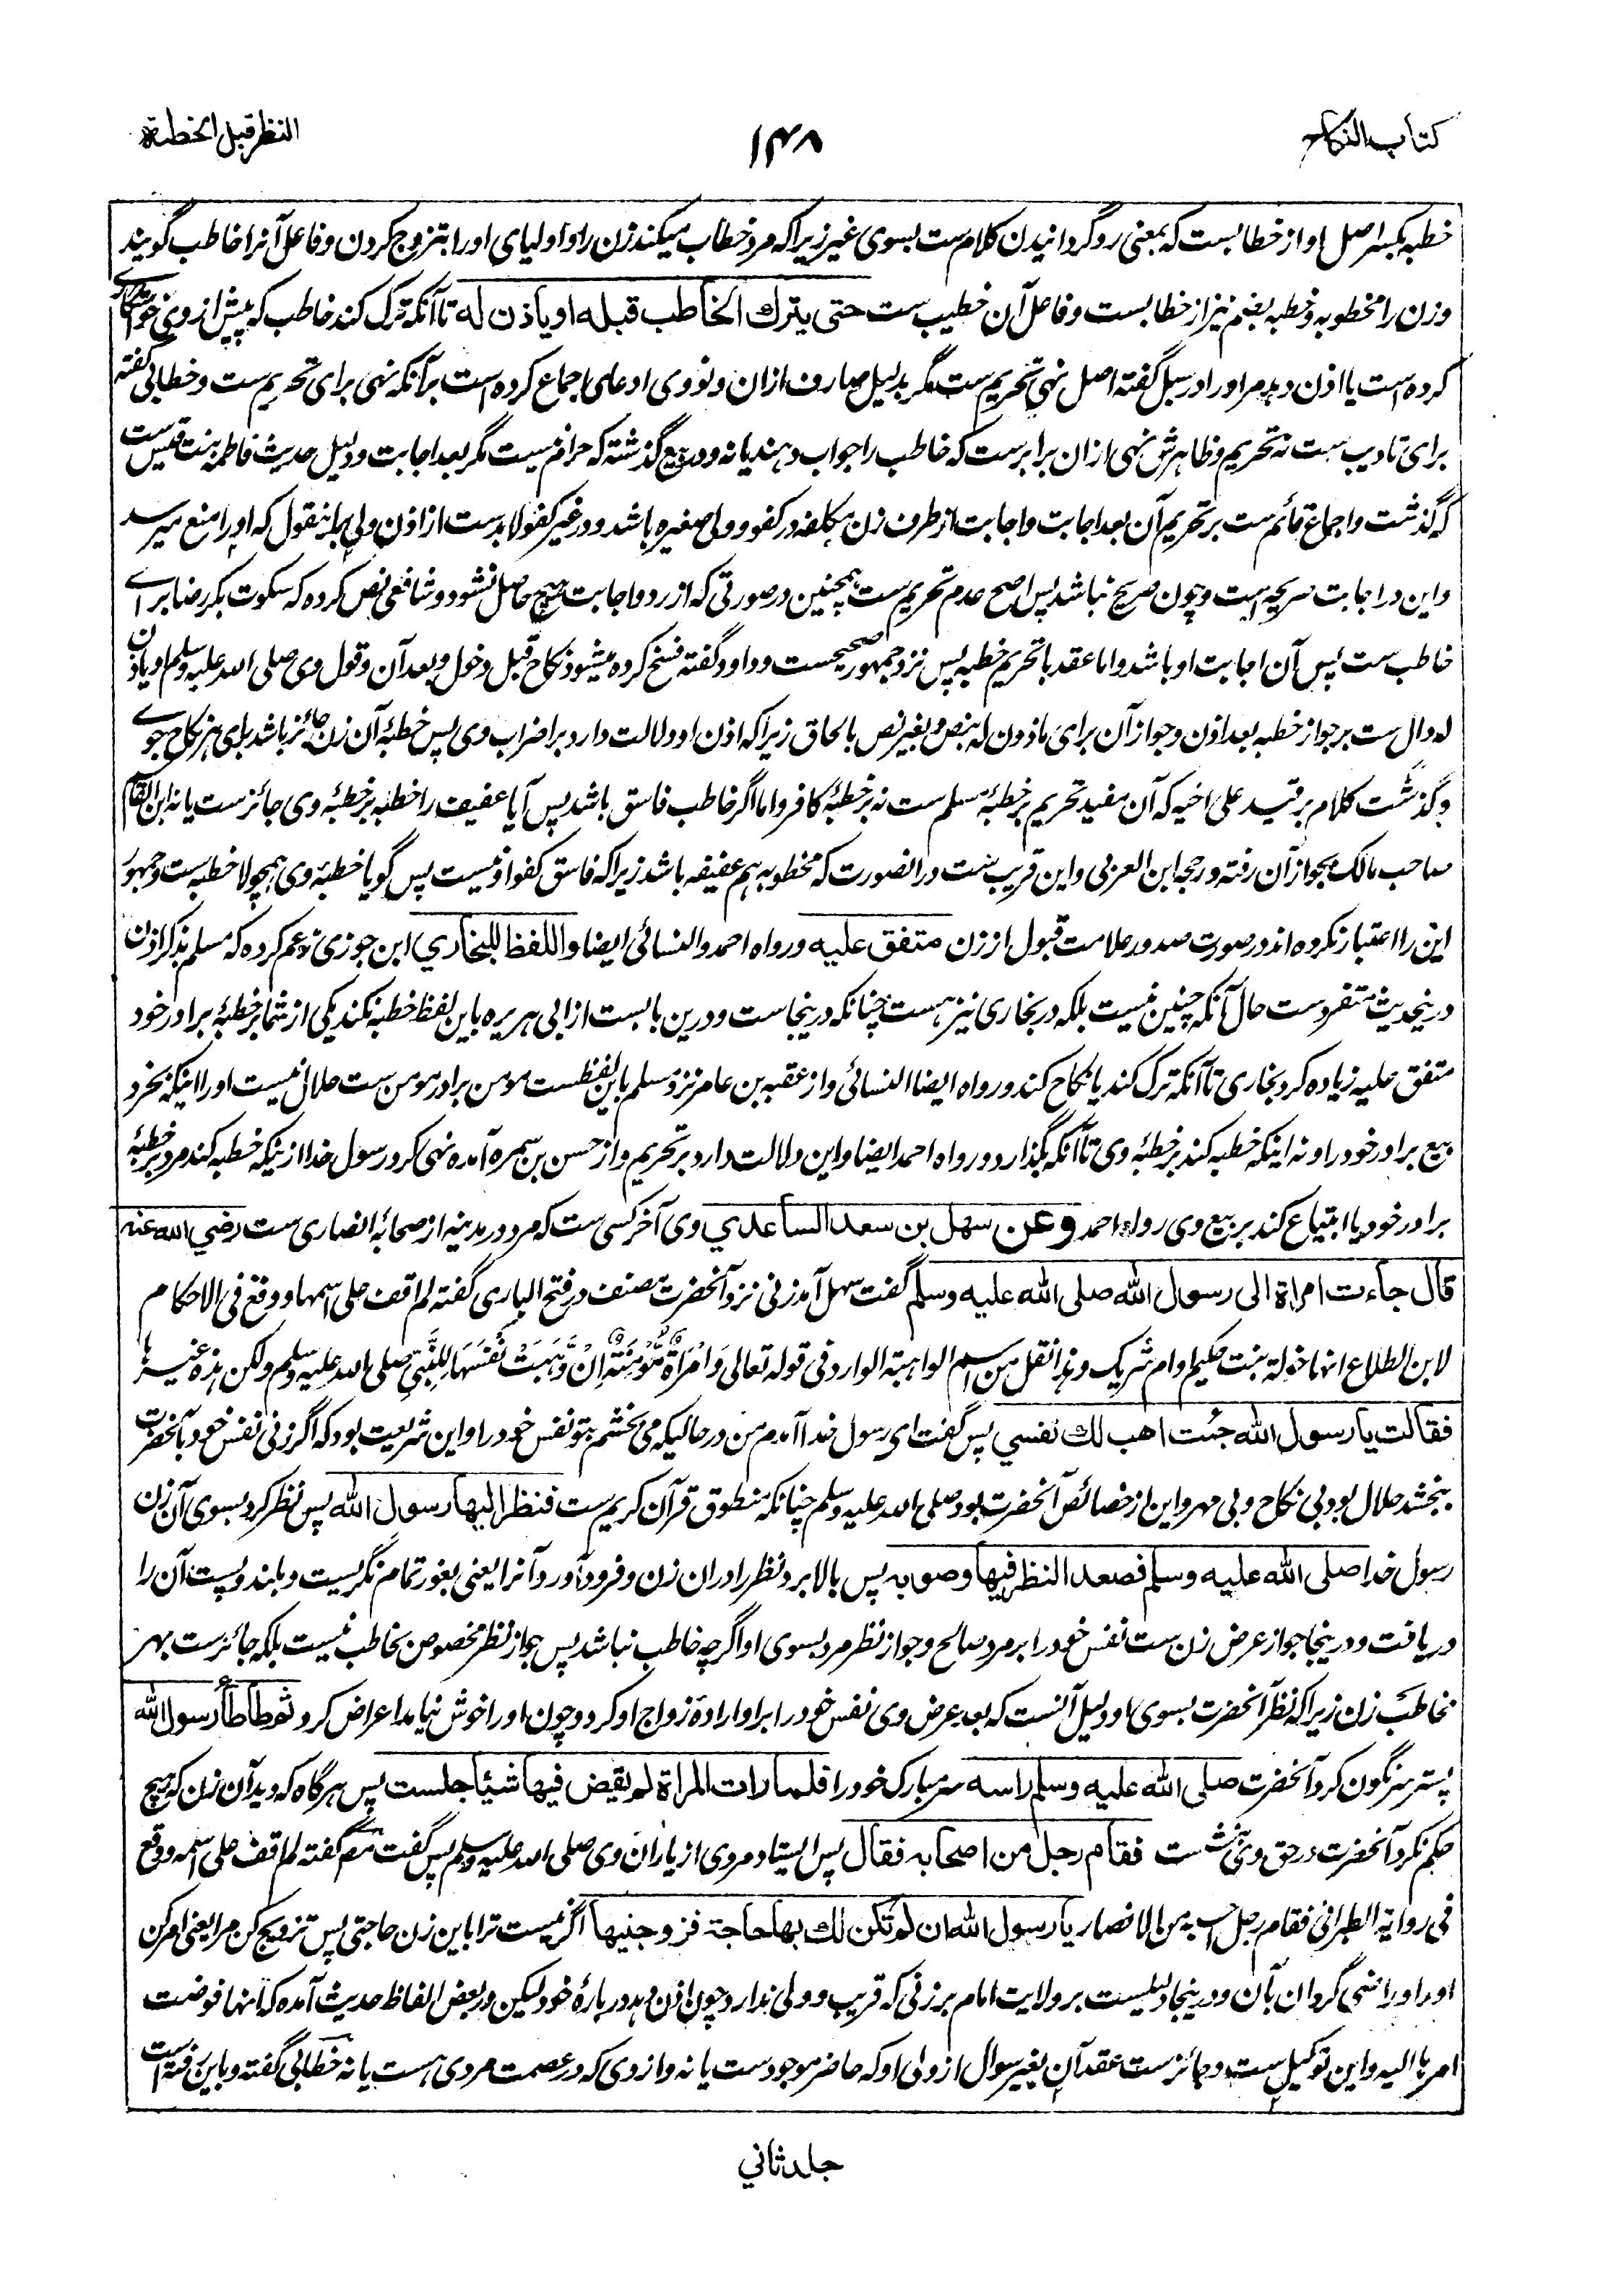 كتاب النكاح
١٤٨
النظر قبل الخطبة
خطبه بکسر اصل او از خطابست که بمعنی رو گردانیدن کلام ست بسوی غیر زیراکه مرد خطاب میکند زن را و اولیای او را بتزوج کردن و فاعل آنرا خاطب گویند
وزن را مخطوبه و خطبه بضم نیز از خطابست و فاعل آن خطیب ست حتى يترك الخاطب قبله او ياذن له تا آنکه ترک کند خاطب که پیش از وی خواستگاری
کرده است یا اذن دهد مر او را در سبل گفته اصل نهی تحریم ست مگر بدلیل صارف ازان و نووی ادعای اجماع کرده است برآنکه نهی برای تحریم ست و خطابی گفته
برای تادیب ست نه تحریم و ظاهرش نهی ازان برابرست که خاطب را جواب دهند یا نه و در بیع گذشته که حرام نیست مگر بعد اجابت و دلیل حدیث فاطمه بنت قیس ست
که گذشت و اجماع قائم ست بر تحریم آن بعد اجابت و اجابت از طرف زن مکلفه در کفو و ولی صغیره باشد و در غیر کفو لابدست از اذن ولی بنابر اینقول که او را منع میرسد
و این در اجابت صریحه است و چون صریح نباشد پس اصح عدم تحریم ست همچنین در صورتی که از رد و اجابت هیچ حاصل نشود و شافعی نص کرده که سکوت بکر رضا برای
خاطب ست پس آن اجابت او باشد و اما عقد با تحریم خطبه پس نزد جمهور صحیحست و داود گفته فسخ کرده میشود نکاح قبل دخول و بعد آن و قول وی صلی الله علیه وسلم او یاذن
له دال ست بر جواز خطبه بعد اذن و جواز آن برای ماذون له بنص و بغیر نص بالحاق زیراکه اذن او دلالت دارد بر اضراب وی پس خطبهٔ آن زن جائز باشد برای هر نکاح جوی
و گذشت کلام بر قید علی اخیه که آن مفید تحریم بر خطبهٔ مسلم ست نه بر خطبهٔ کافر و اما اگر خاطب فاسق باشد پس آیا عفیف را خطبه بر خطبهٔ وی جائزست یا نه ابن القاسم
صاحب مالک بجواز آن رفته و رجحه ابن العربی و این قریب ست در انصورت که مخطوبه هم عفیفه باشد زیراکه فاسق کفو او نیست پس گویا خطبهٔ وی همچو لا خطبه ست و جمهور
این را اعتبار نکرده اند در صورت صدور علامت قبول از زن متفق عليه و رواه احمد والنسائی ایضا واللفظ للبخاري ابن جوزی زعم کرده که مسلم بذکر اذن
درینحدیث متفردست حال آنکه چنین نیست بلکه در بخاری نیز هست چنانکه درینجاست و درین بابست از ابی هریره باین لفظ خطبه نکند یکی از شما بر خطبهٔ برادر خود
متفق علیه زیاده کرد بخاری تا آنکه ترک کند یا نکاح کند و رواه ایضا النسائی و از عقبه بن عامر نزد مسلم باین لفظست مومن برادر مومن ست حلال نیست او را اینکه بخرد
بیع برادر خود را و نه اینکه خطبه کند بر خطبهٔ وی تا آنکه بگذارد و رواه احمد ایضا و این دلالت دارد بر تحریم و از حسن بن سمره آمده نهی کرد رسول خدا ازینکه خطبه کند مرد بر خطبهٔ
برادر خود یا ابتیاع کند بر بیع وی رواه احمد وعن سهل بن سعد الساعدي وی آخر کسی ست که مرد در مدینه از صحابهٔ انصاری ست رضي الله عنه
قال جاءت امراة الى رسول الله صلى الله عليه وسلم گفت سهل آمد زنی نزد آنحضرت مصنف در فتح الباری گفته لم اقف علی اسمها و وقع فی الاحکام
لابن الطلاع انها خولة بنت حکیم او ام شریک و هذا نقل من اسم الواهبة الوارد فی قوله تعالی وَامْرَأَةً مُّؤْمِنَةً اِنْ وَّهَبَتْ نَفْسَهَا لِلنَّبِيِّ صلی الله علیه وسلم ولکن هذه غیرها
فقالت يا رسول الله جئت اهب لك نفسي پس گفت ای رسول خدا آمدم من در حالیکه می بخشم بتو نفس خود را و این شریعت بود که اگر زنی نفس خود بآنحضرت
ببخشد حلال بود بی نکاح و بی مهر و این از خصائص آنحضرت بود صلی الله علیه وسلم چنانکه منطوق قرآن کریم ست فنظر اليها رسول الله پس نظر کرد بسوی آن زن
رسول خدا صلى الله عليه وسلم فصعد النظر فيها وصوبه پس بالا برد نظر را دران زن و فرود آورد آنرا یعنی بغور تمام نگریست و بلند و پست آن را
دریافت و درینجا جواز عرض زن ست نفس خود را بر مرد صالح و جواز نظر مرد بسوی او اگرچه خاطب نباشد پس جواز نظر مخصوص بخاطب نیست بلکه جائزست بهر
مخاطب زن زیراکه نظر آنحضرت بسوی او دلیل آنست که بعد عرض وی نفس خود را برا و ارادهٔ زواج او کرد و چون او را خوش نیامد اعراض کرد ثم طأطأ رسول الله
پستر سرنگون کرد آنحضرت صلى الله عليه وسلم راسه سر مبارک خود را فلما رات المراة لم يقض فيها شيئا جلست پس هرگاه که دید آن زن که هیچ
حکم نکرد آنحضرت در حق وی نشست فقام رجل من اصحابه فقال پس ایستاد مردی از یاران وی صلی الله علیه وسلم پس گفت مصنف گفته لم اقف علی اسمه و وقع
فی روایة الطبرانی فقام رجل احسبه من الانصار يا رسول الله ان لم تكن لك بها حاجة فزوجنيها اگر نیست ترا باین زن حاجتی پس تزویج کن مرا یعنی امر کن
او را و راضی گردان بآن و درینجا دلیلیست بر ولایت امام بر زنی که قریب و ولی ندارد چون اذن دهد دربارهٔ خود لیکن در بعض الفاظ حدیث آمده که انها فوضت
امرها الیه و این توکیل ست و جائزست عقد آن بغیر سوال از ولی او که حاضر موجودست یا نه و از وی که در عصمت مردی هست یا نه خطابی گفته و باین رفته است
جلد ثاني